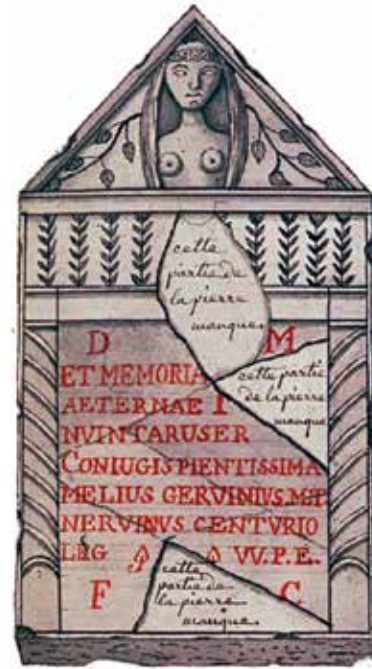 cette
partie de
la pierre
manque.
D M
ET MEMORIA
cette partie
de la pierre
manque
AETERNAE I
NVINTARUSER
CONIUGIS PIENTISSIMA
MELIUS GERVINIVS
NERVINVS CENTVRIO
LEG VV.P.E.
F C
cette
partie de
la pierre
manque.